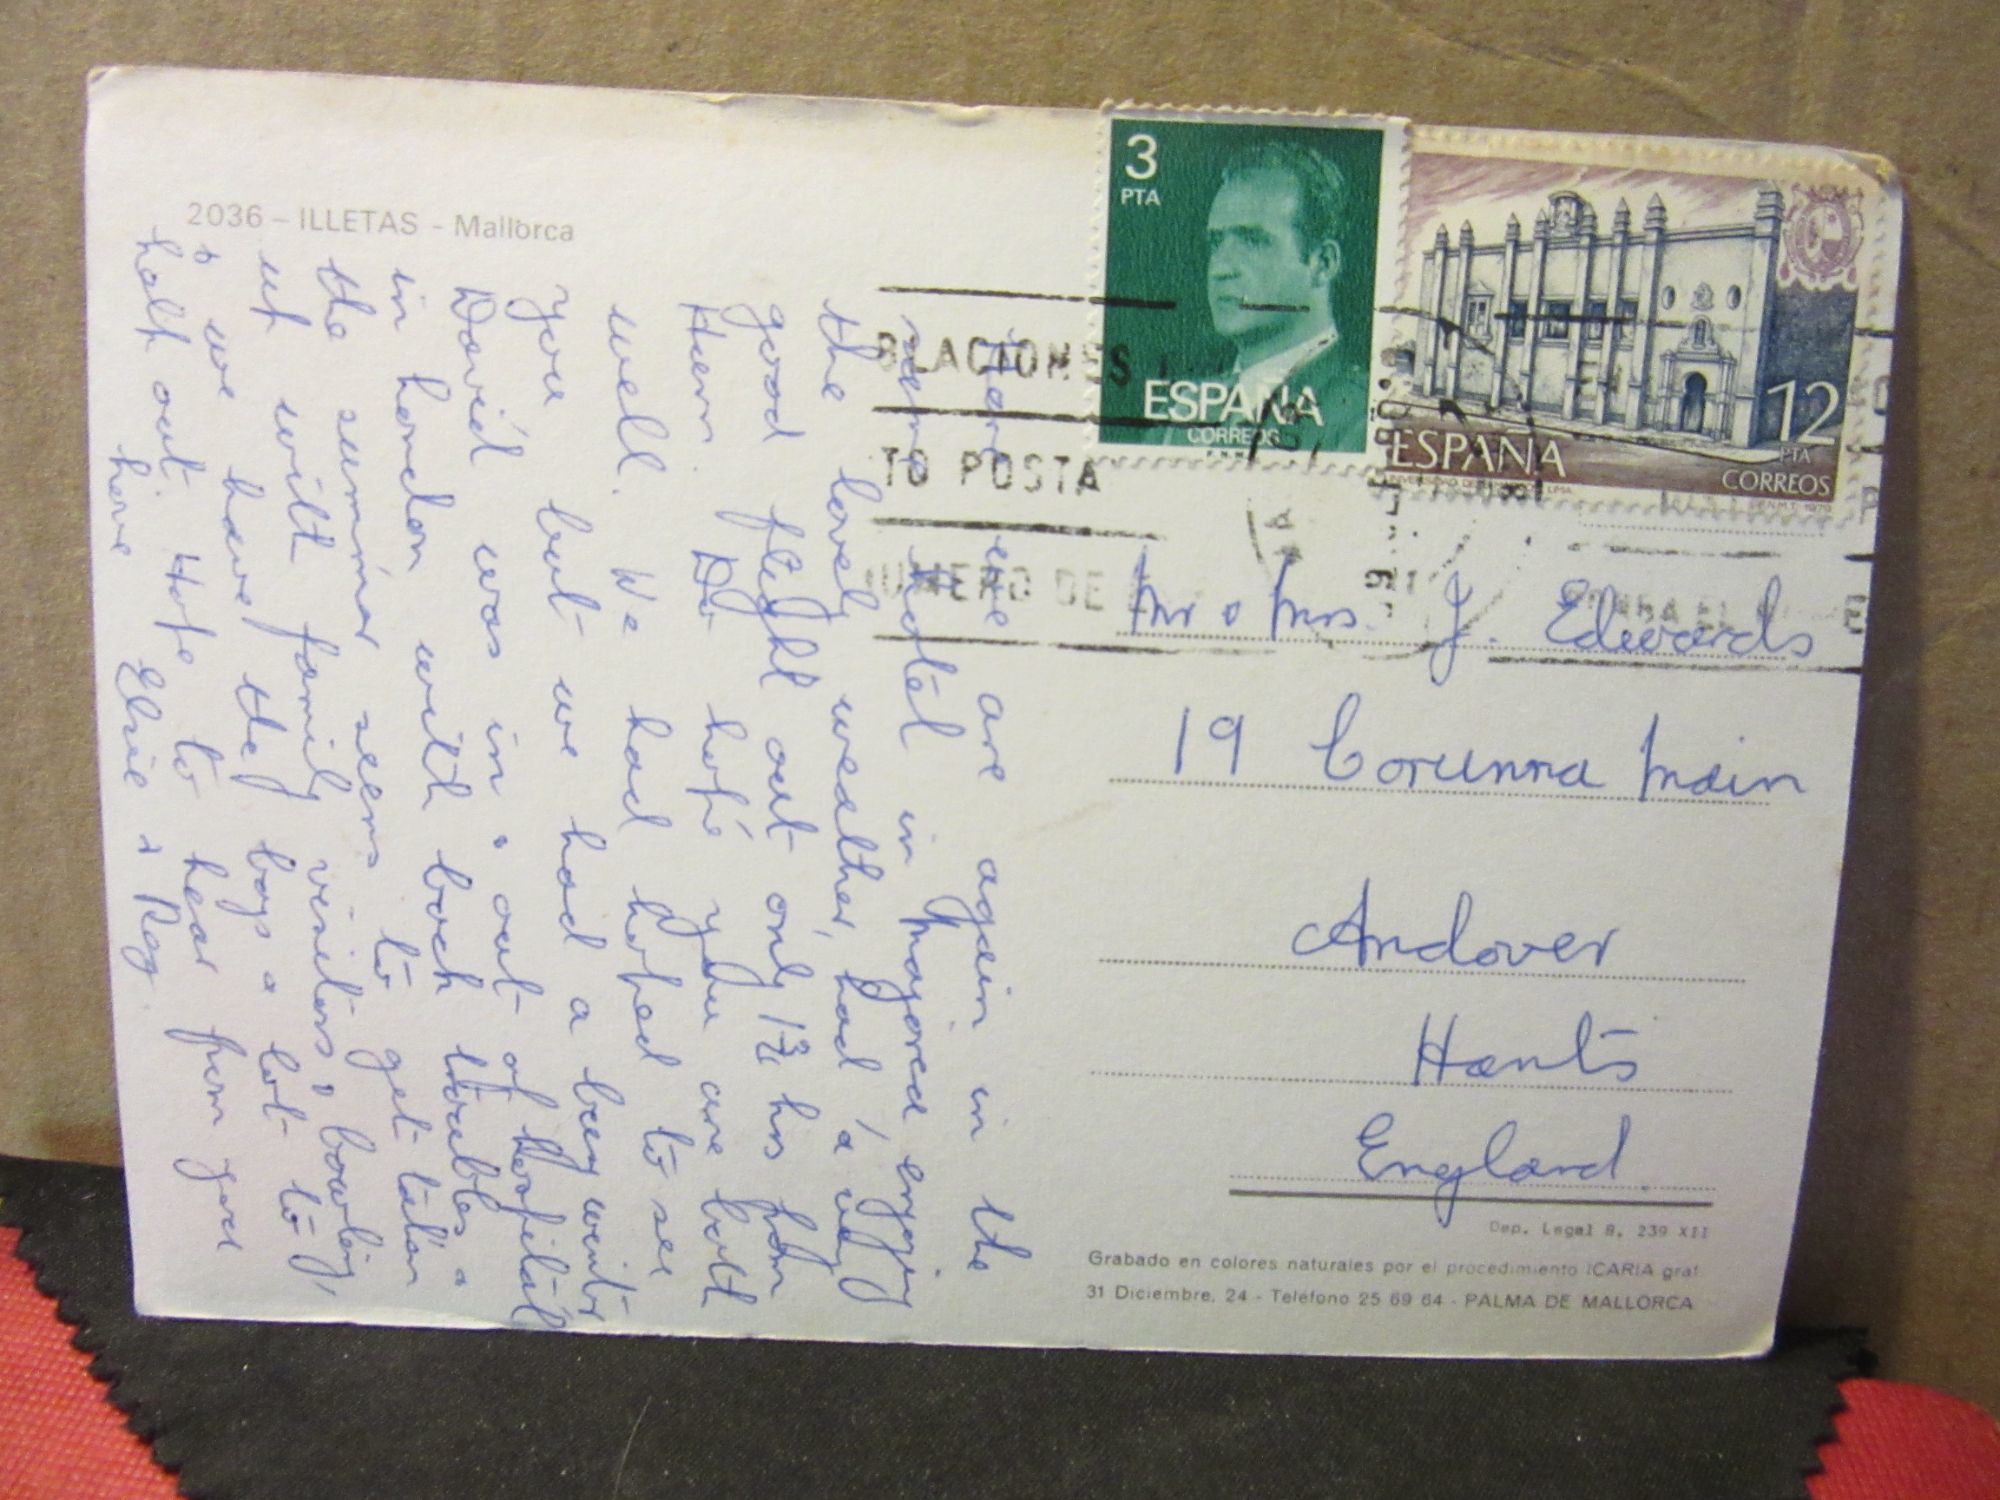 2036 – ILLETAS - Mallorca
Here we are again in the
same Hotel in Mayorca enjoying
the lovely weather, had a very
good flight out only 1¾ hrs from
Hurn. Do hope you are both
well. We had hoped to see
you but we had a bay winter
David was in & out of Hospital
in London with back troubles &
the summer seems to get taken
up with family visitors, bowling,
& we have the boys a lot to
help out. Hope to hear from you
love Elsie & Reg.
3
PTA
ESPAÑA
CORREOS
F.N.M.T.
12
PTA
ESPAÑA
CORREOS
BLACIONES
TO POSTA
NUMERO DE
Mr & Mrs J. Edwards
19 Corunna Main
Andover
Hants
England.
Dep. Legal B. 239 XII
Grabado en colores naturales por el procedimiento ICARIA graf
31 Diciembre, 24 - Teléfono 25 69 64 - PALMA DE MALLORCA